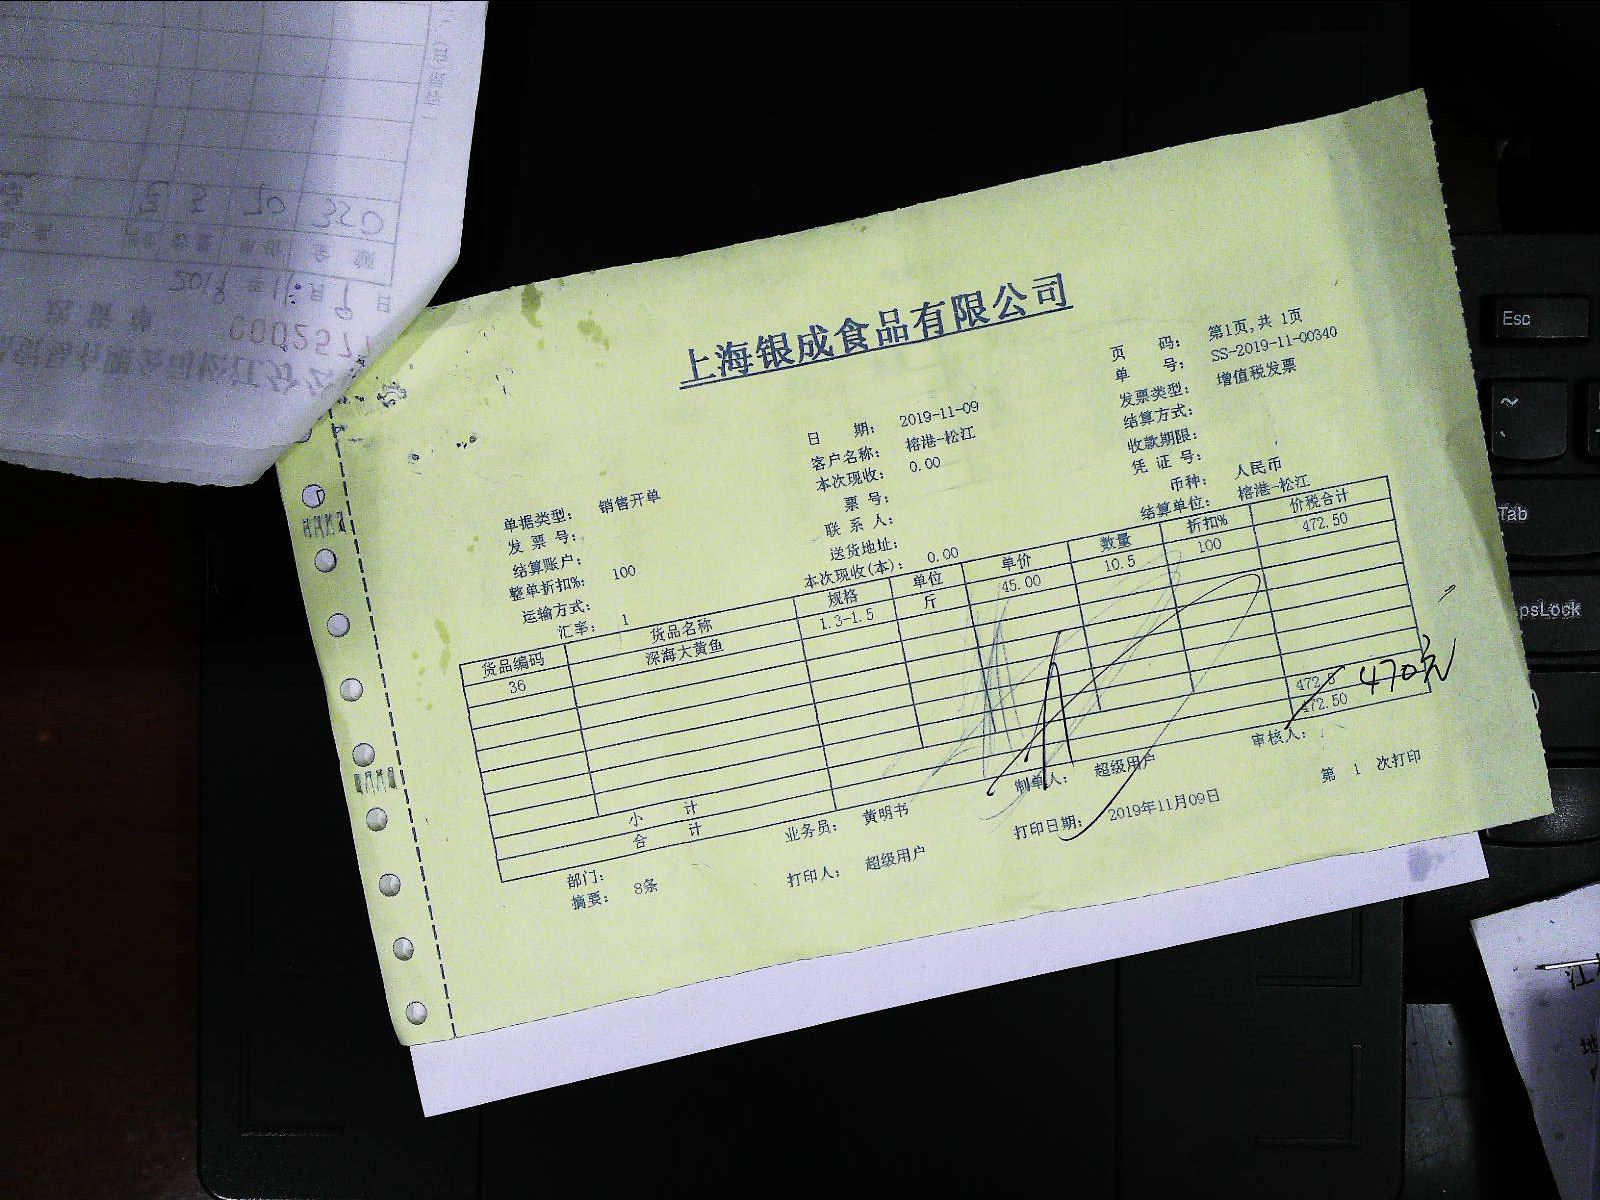 上海银成食品有限公司
页 码: 第1页,共 1页
单 号: SS-2019-11-00340
发票类型: 增值税发票
结算方式:
收款期限:
凭 证 号:
币种: 人民币
结算单位: 榕港-松江
日 期: 2019-11-09
客户名称: 榕港-松江
本次现收: 0.00
票 号:
联 系 人:
送货地址:
本次现收(本): 0.00
单据类型: 销售开单
发 票 号:
结算账户:
整单折扣%: 100
运输方式:
汇率: 1
货品编码 货品名称 规格 单位 单价 数量 折扣% 价税合计
36 深海大黄鱼 1.3-1.5 斤 45.00 10.5 100 472.50
小 计 472.5 470元
合 计 472.50
部门: 业务员: 黄明书 制单人: 超级用户 审核人:
摘要: 8条 打印人: 超级用户 打印日期: 2019年11月09日 第 1 次打印
2019 年 11 月 9 日
70 350
0002577
Esc
Tab
psLock
江
地